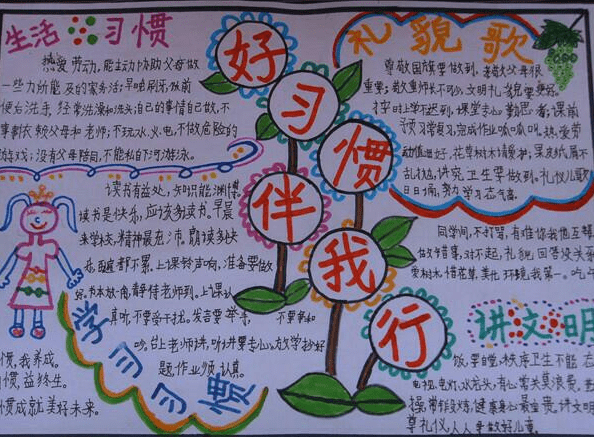 生活习惯
热爱劳动,能主动协助父母做
一些力所能及的家务活;早晚刷牙,饭前
便后洗手,经常洗澡和洗头自己的事情自己做,不
事事依赖父母和老师;不玩水、火、电,不做危险的
游戏;没有父母陪同,不能私自下河游泳。
好习惯伴我行
礼貌歌
尊敬国旗要做到,孝敬父母很
重要;
按时上学不迟到,课堂专心勤思考;课前
预习学复习,完成作业
花草树木请爱护;果皮纸屑不
乱扔,讲究卫生要做到,礼仪儿歌
日日诵,努力学习志气高。
读书有益处,知识能渊博
读书是快乐,应该多读书。早晨
来学校,精神最充沛,朗读多快
都不累。上课铃声响,准备要做
静待老师到。上课认
真听,不要受干扰。发言要举手,不要
台上老师讲,听讲要专心。放学抄好
题,作业须认真。
学习习惯
惯,我养成。
惯,益终生。
惯成就美好未来。
同学间,不打骂,有难你我他互帮
做错事,对不起,礼貌回答没关系
爱树木,惜花草,美化环境我第一。吃午
讲文明
饭,要自觉,秩序卫生不能
电视,电灯,水龙头,有心
操,常作段炼,健康身心最宝贵,讲文明
尊礼仪,人人争做好儿童。